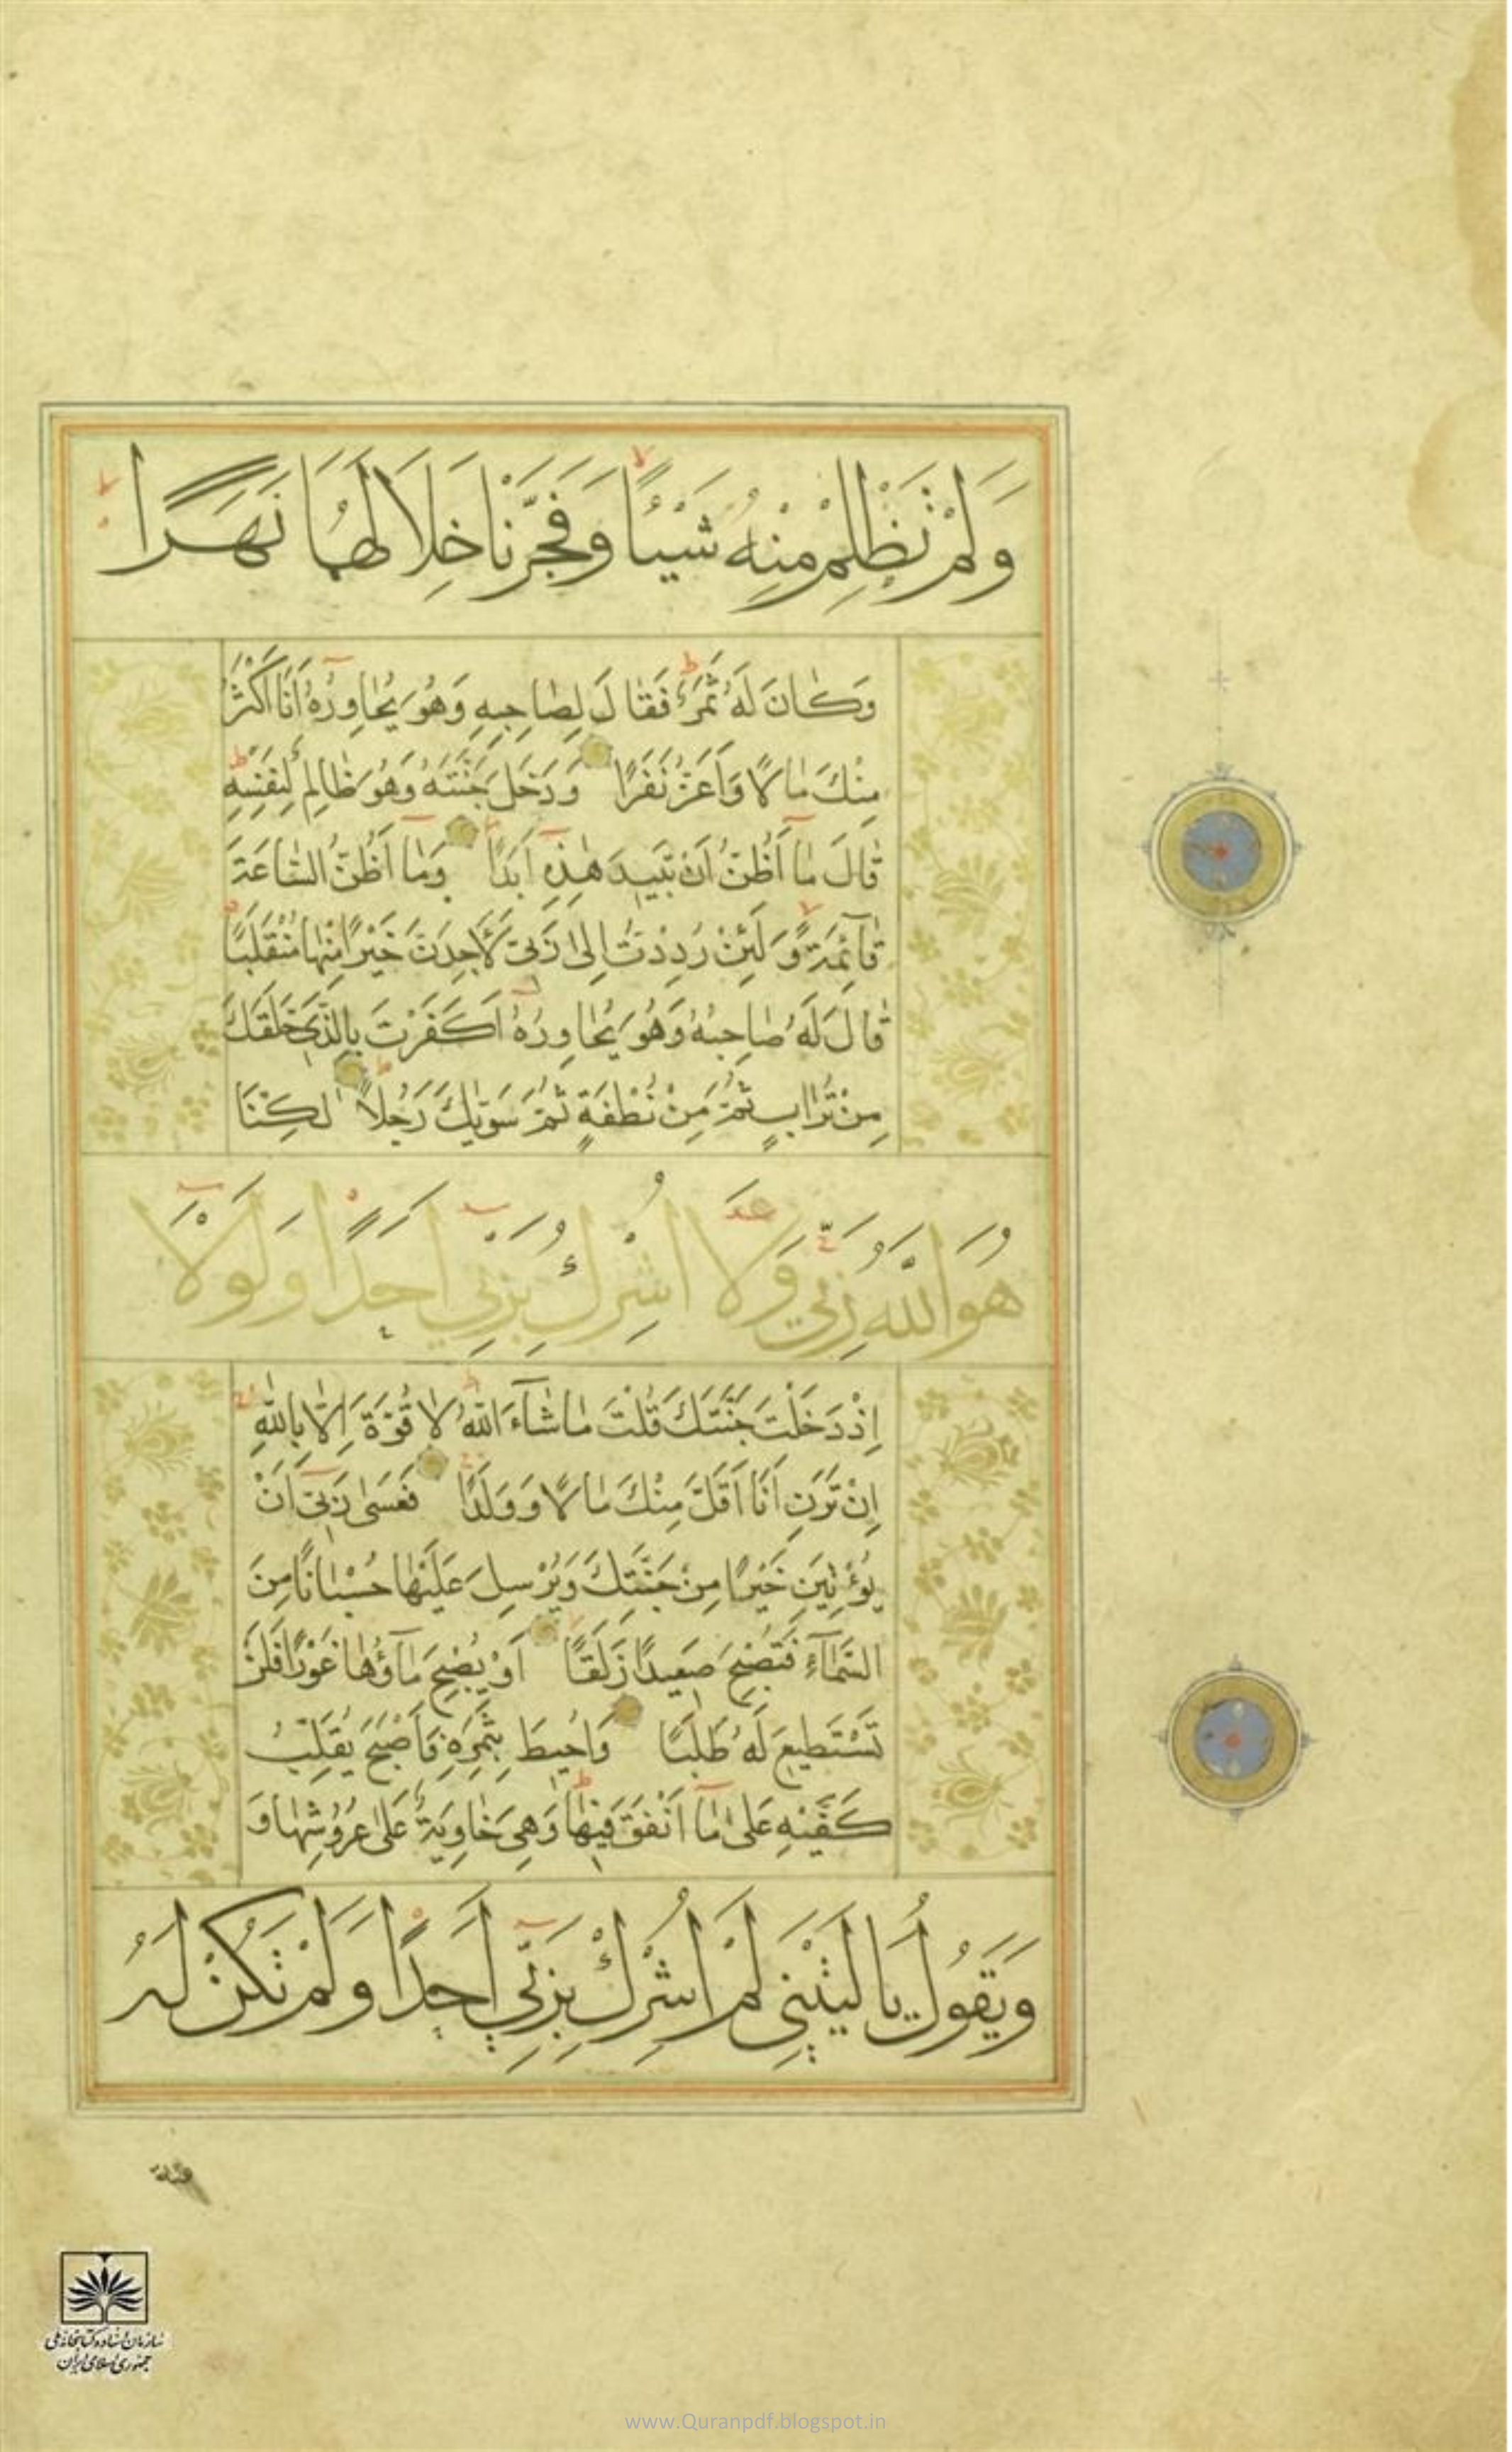 وَلَمْ تَظْلِمْ مِنْهُ شَيْئًا وَفَجَّرْنَا خِلَالَهُمَا نَهَرًا
وَكَانَ لَهُ ثَمَرٌ فَقَالَ لِصَاحِبِهِ وَهُوَ يُحَاوِرُهُ أَنَا أَكْثَرُ
مِنْكَ مَالًا وَأَعَزُّ نَفَرًا وَدَخَلَ جَنَّتَهُ وَهُوَ ظَالِمٌ لِنَفْسِهِ
قَالَ مَا أَظُنُّ أَنْ تَبِيدَ هٰذِهِ أَبَدًا وَمَا أَظُنُّ السَّاعَةَ
قَآئِمَةً وَلَئِنْ رُدِدْتُ إِلىٰ رَبِّي لَأَجِدَنَّ خَيْرًا مِنْهَا مُنْقَلَبًا
قَالَ لَهُ صَاحِبُهُ وَهُوَ يُحَاوِرُهُ أَكَفَرْتَ بِالَّذِي خَلَقَكَ
مِنْ تُرَابٍ ثُمَّ مِنْ نُطْفَةٍ ثُمَّ سَوّٰيكَ رَجُلًا لٰكِنَّا
هُوَ اللّٰهُ رَبِّي وَلَا أُشْرِكُ بِرَبِّي أَحَدًا وَلَوْلَا
إِذْ دَخَلْتَ جَنَّتَكَ قُلْتَ مَا شَآءَ اللّٰهُ لَا قُوَّةَ إِلَّا بِاللّٰهِ
إِنْ تَرَنِ أَنَا أَقَلَّ مِنْكَ مَالًا وَوَلَدًا فَعَسىٰ رَبِّي أَنْ
يُؤْتِيَنِ خَيْرًا مِنْ جَنَّتِكَ وَيُرْسِلَ عَلَيْهَا حُسْبَانًا مِنَ
السَّمَآءِ فَتُصْبِحَ صَعِيدًا زَلَقًا أَوْ يُصْبِحَ مَآؤُهَا غَوْرًا فَلَنْ
تَسْتَطِيعَ لَهُ طَلَبًا وَأُحِيطَ بِثَمَرِهِ فَأَصْبَحَ يُقَلِّبُ
كَفَّيْهِ عَلىٰ مَا أَنْفَقَ فِيهَا وَهِيَ خَاوِيَةٌ عَلىٰ عُرُوشِهَا وَ
وَيَقُولُ يَا لَيْتَنِي لَمْ أُشْرِكْ بِرَبِّي أَحَدًا وَلَمْ تَكُنْ لَهُ
سازمان اسناد و کتابخانه ملی
جمهوری اسلامی ایران
www.Quranpdf.blogspot.in